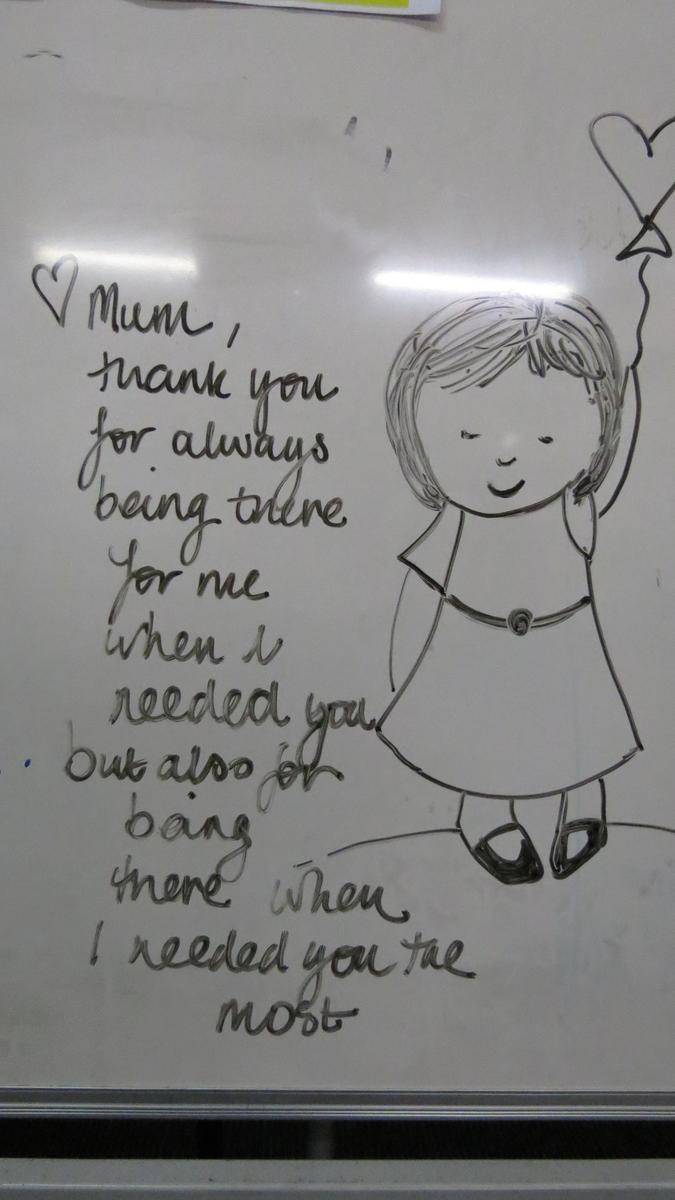 Mum,
thank you
for always
being there
for me
when I
needed you
but also for
being
there when
I needed you the
most